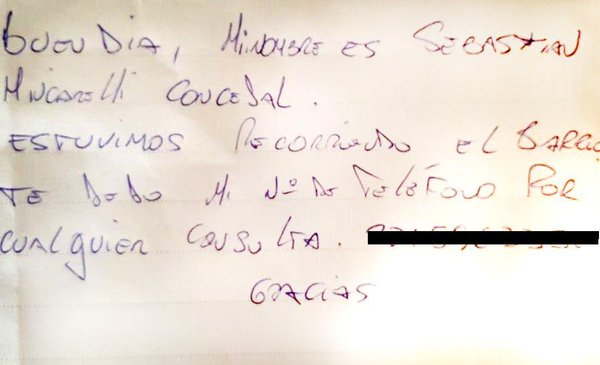 BUEN DIA, MI NOMBRE ES SEBASTIAN
MINCARELLI CONCEJAL.
ESTUVIMOS RECORRIENDO EL BARRIO
TE DEJO MI Nº DE TELÉFONO POR
CUALQUIER CONSULTA.
GRACIAS